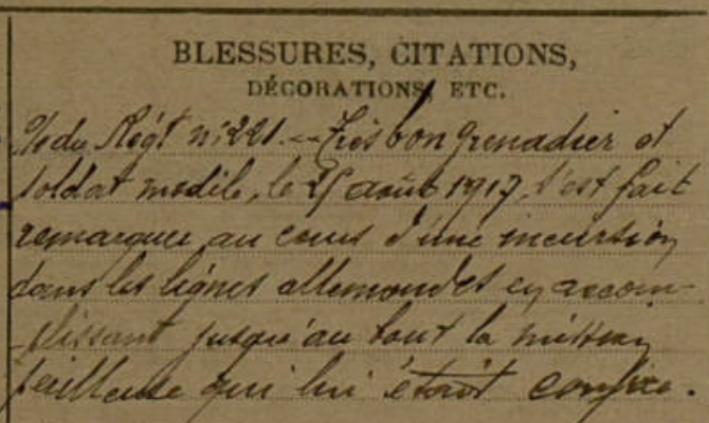 BLESSURES, CITATIONS,
DÉCORATIONS, ETC.
O/ du Régt n: 221. -- Très bon grenadier et
soldat modèle, le 25 août 1917, s'est fait
remarquer au cours d'une incursion
dans les lignes allemandes en accom-
plissant jusqu'au bout la mission
périlleuse qui lui était confiée.